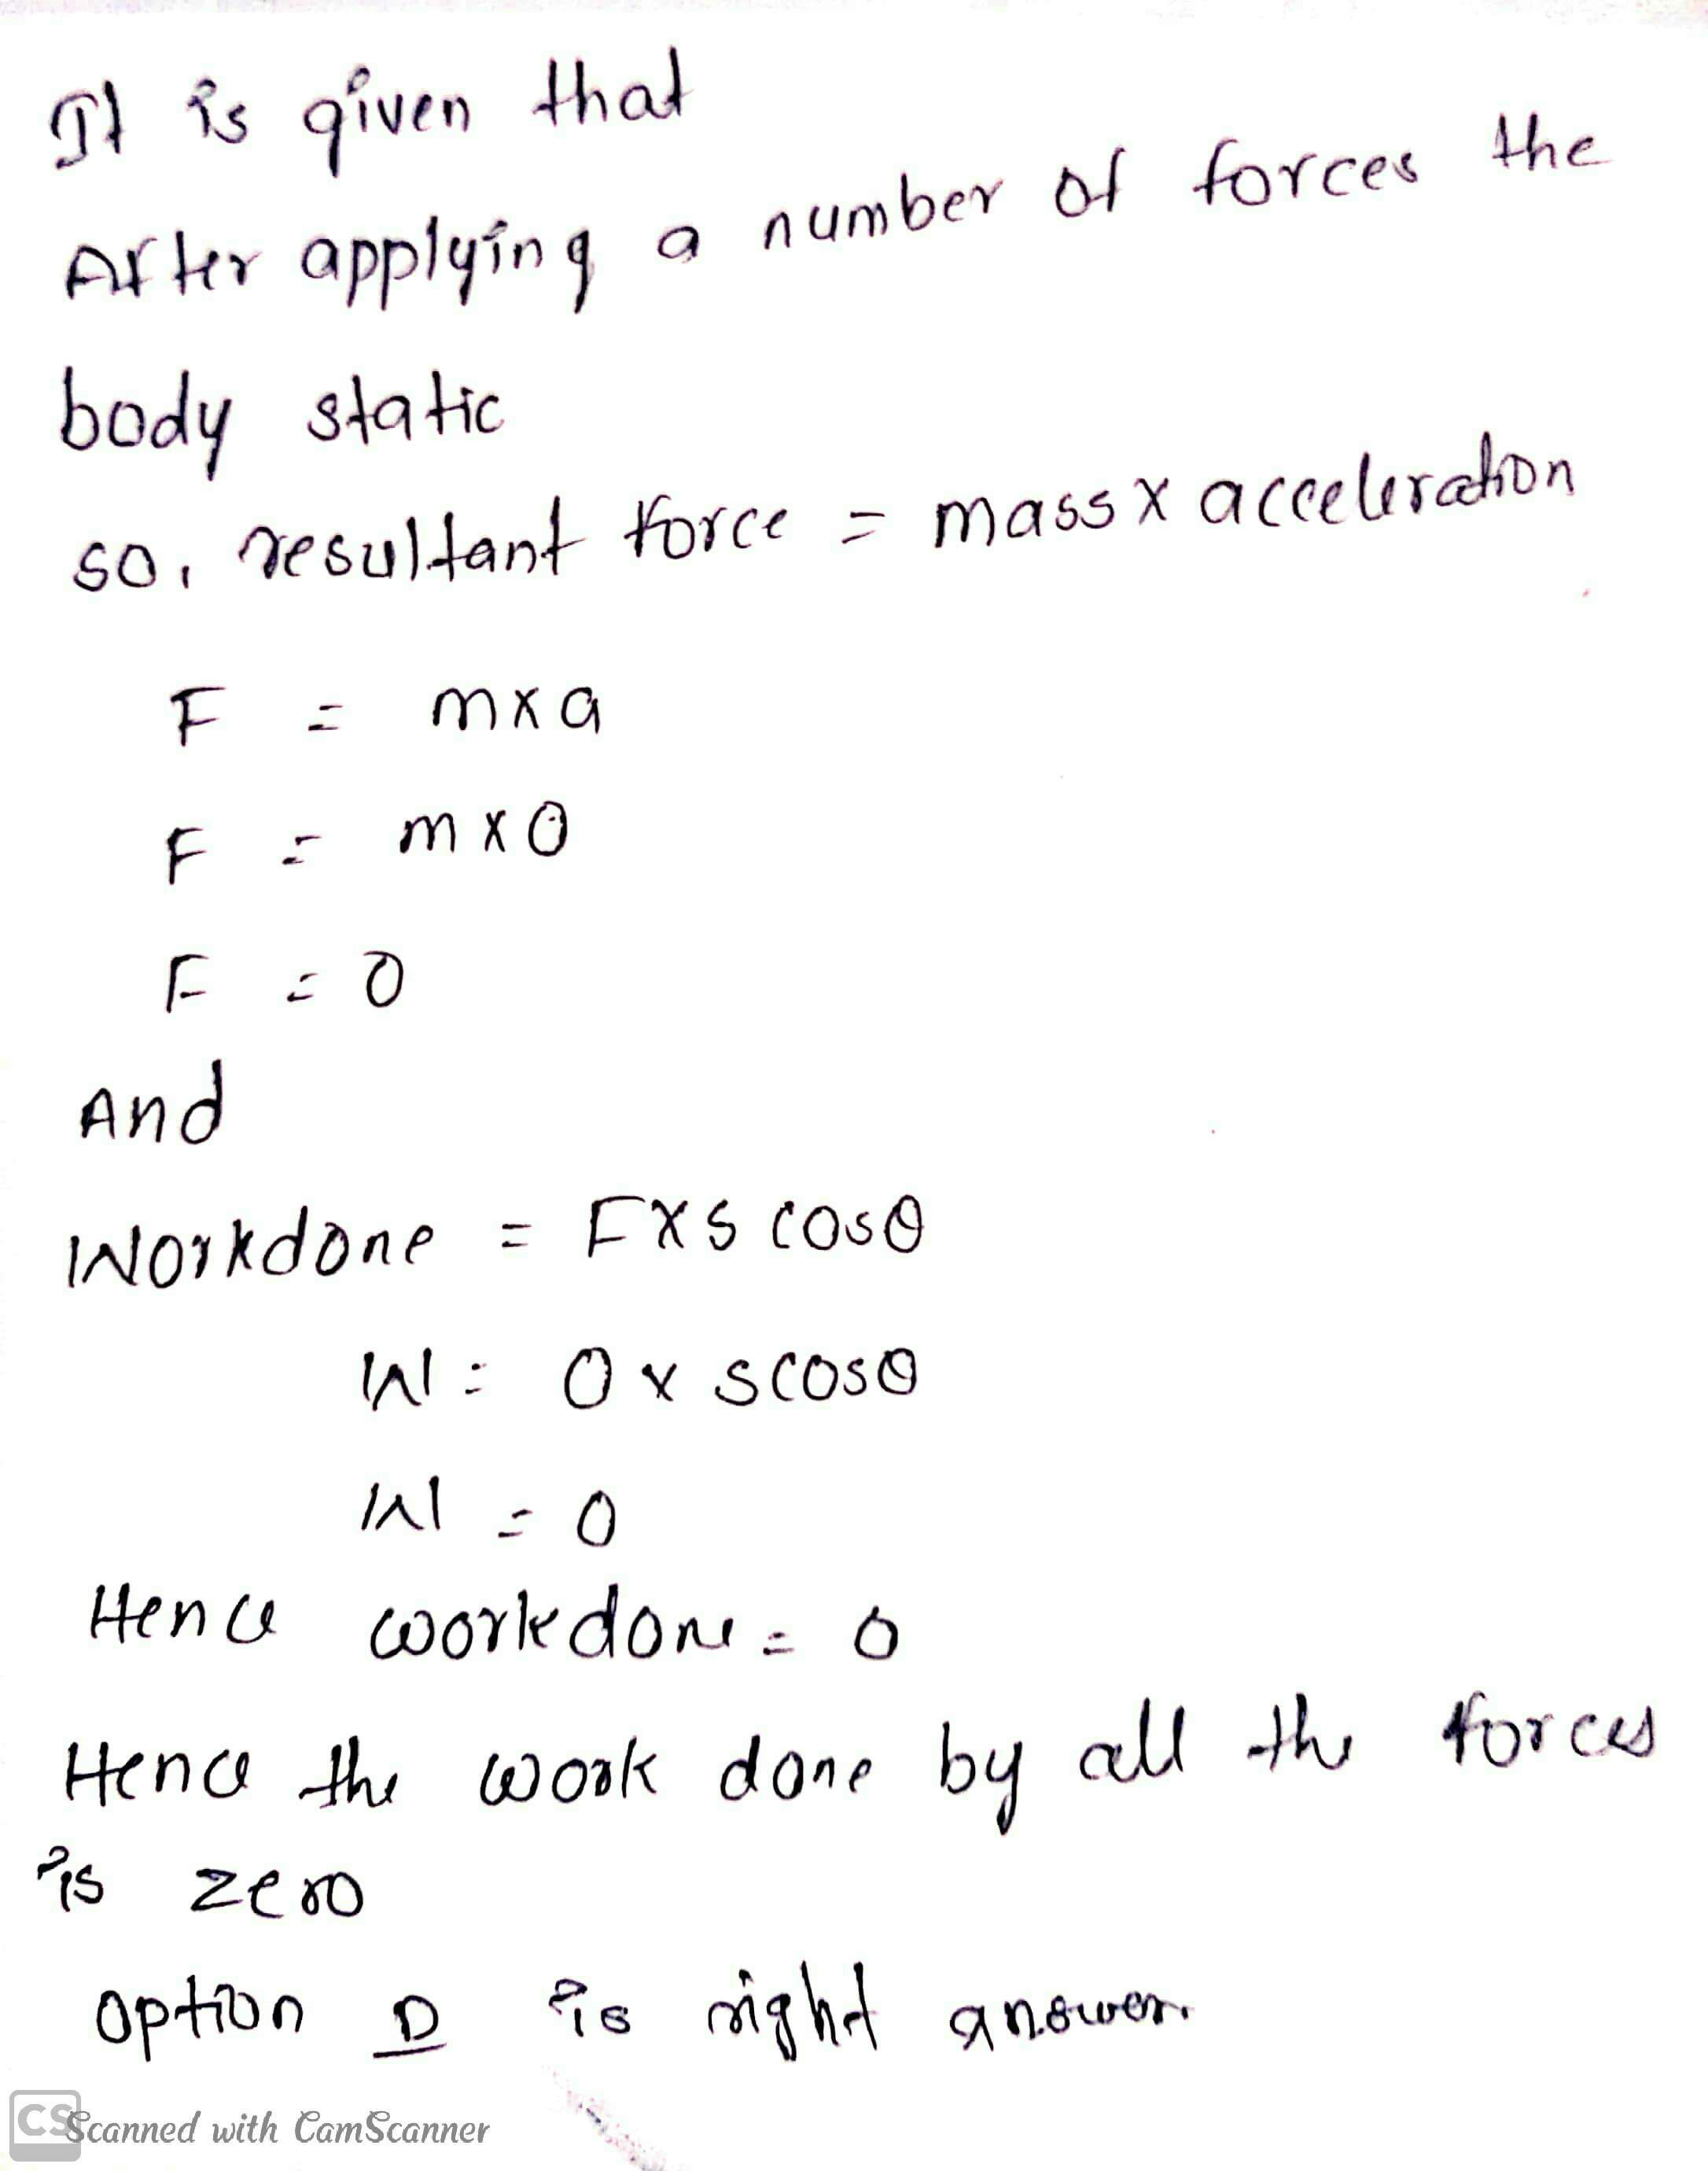 It is given that
After applying a number of forces the
body static
so, resultant force = mass x acceleration
F = mxa
F = mx0
F = 0
And
Workdone = FXS cosθ
W = 0 x scosθ
W = 0
Hence workdone = 0
Hence the work done by all the forces
is zero
option D is right answer.
CS Scanned with CamScanner